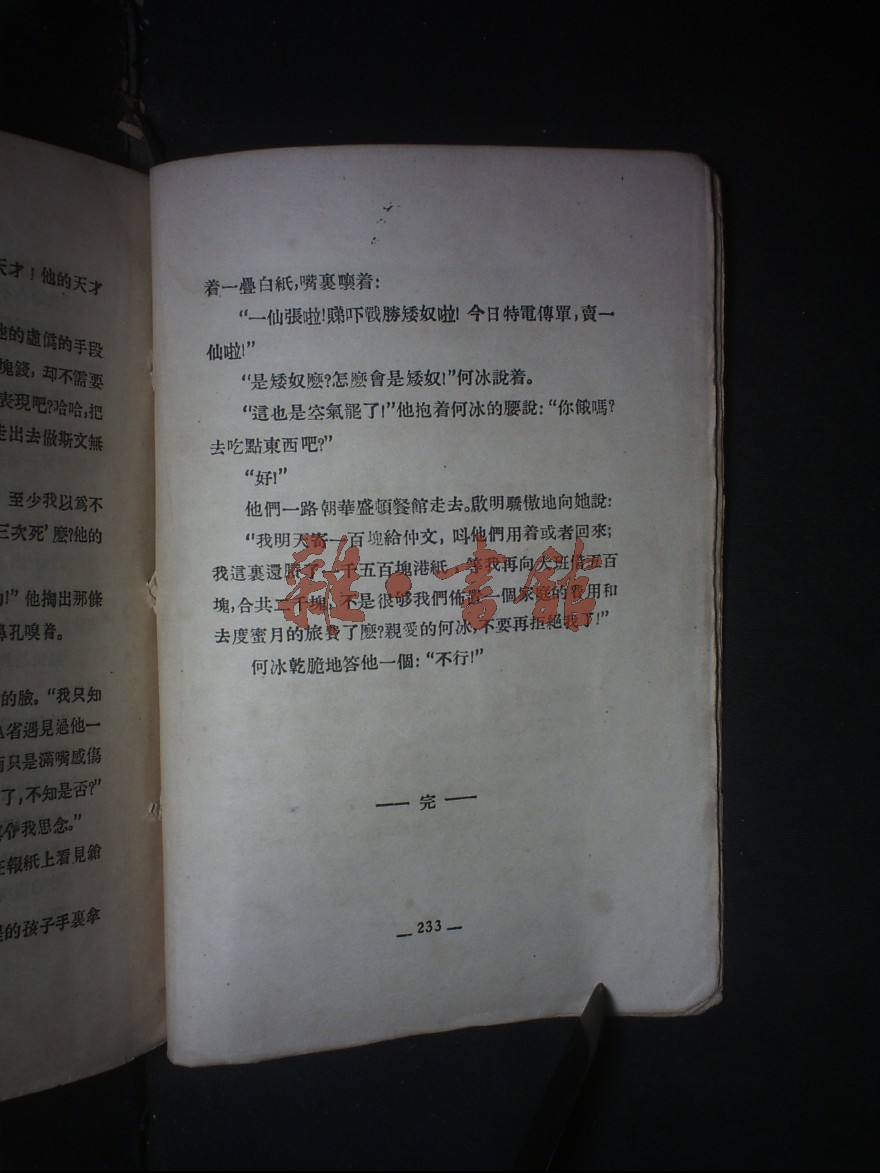 天才！他的天才
他的虛僞的手段
塊錢，却不需要
表現吧？哈哈，把
走出去做斯文無
至少我以爲不
三次死’麽？他的
!”他掏出那條
鼻孔嗅着。
的臉。“我只知
省遇見過他一
只是滿嘴感傷
了，不知是否？”
我思念。”
報紙上看見給
的孩子手裏拿
着一疊白紙，嘴裏嚷着：
“一仙張啦！睇吓戰勝矮奴啦！今日特電傳單，賣一
仙啦！”
“是矮奴麽？怎麽會是矮奴！”何冰說着。
“這也是空氣罷了！”他抱着何冰的腰說：“你餓嗎？
去吃點東西吧？”
“好！”
他們一路朝華盛頓餐館走去。啟明驕傲地向她說：
“我明天寄一百塊給仲文，叫他們用着或者回來；
我這裏還賸了一千五百塊港紙，等我再向大班借五百
塊，合共二千塊，不是很够我們佈置一個家庭的費用和
去度蜜月的旅費了麽？親愛的何冰，不要再拒絕我了！”
何冰乾脆地答他一個：“不行！”
—— 完 ——
— 233 —
雜·書館